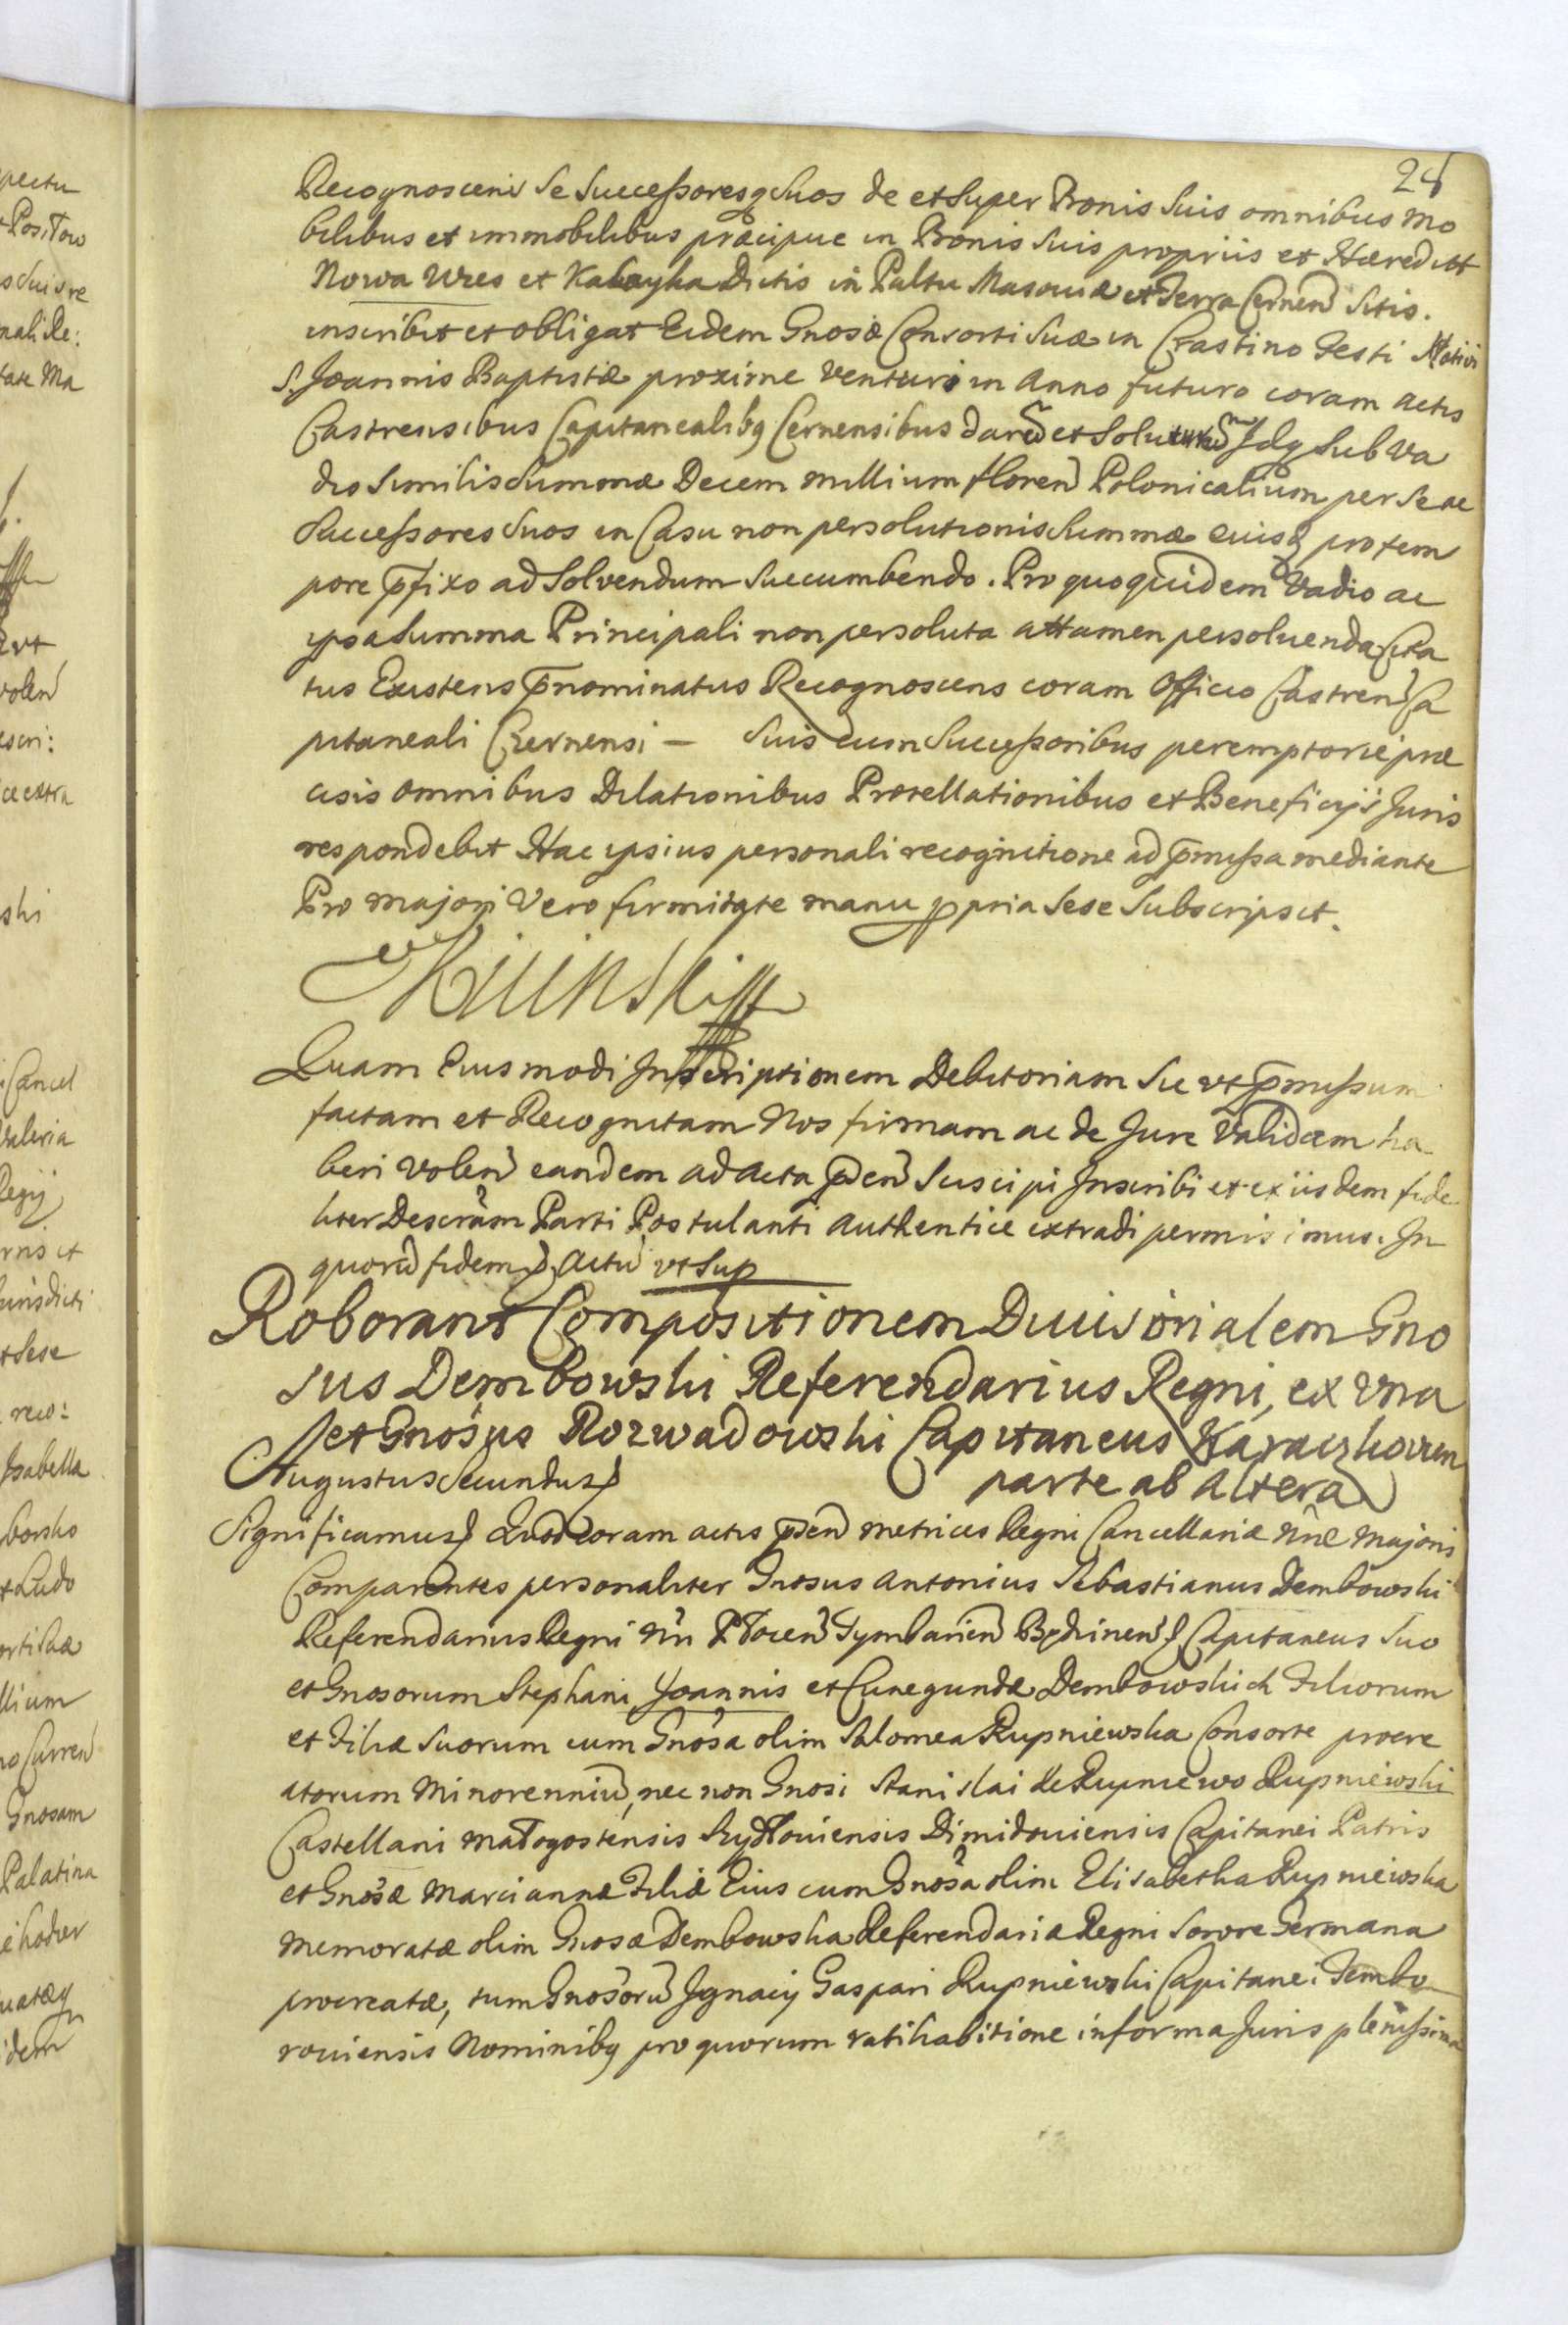 24
Recognoscens Se Successoresq Suos de et Super Bonis Suis omnibus mo
bilibus et immobilibus præcipue in Bonis Suis propriis et Hæreditt
Nowa Wies et Kabayka Dictis in Paltu Masouiæ et Terra Cernen Sitis.
inscribit et obligat Eidem Gnosæ Consorti Suæ in Crastino Festi
S. Joannis Baptistæ proxime venturi in Anno futuro coram actis
Castrensibus Capitanealibq Cernensibus dare et Idq Sub va
dio Similis Summæ Decem millium floren Polonicalium per Se ac
Successores Suos in Casu non persolutionis Summæ eiusq pro tem
pore pfixo ad Solvendum Succumbendo. Pro quo quidem Vadio ac
ipsa Summa Principali non persoluta attamen persoluenda Cita
tus Existens pnominatus Recognoscens coram Officio Castren Ca
pitaneali Czernensi — Suis cum Successoribus peremptorie præ
cisis omnibus Dilationibus et Beneficijs Juris
respondebit Hac ipsius personali recognitione ad pmissa mediante
Pro majori Vero firmitate manu ppria Sese Subscripsit.
Quam Eiusmodi Inscriptionem Debitoriam Sic vt pmissum
factam et Recognitam Nos firmam ac de Jure Validam ha
beri volen eandem ad acta pden Suscipi Inscribi et ex iisdem fide
liter Descram Parti Postulanti authentice extradi permisimus. In
quoru fidem Actu vt Sup
Roborant Compositionem Diuisorialem Gno
sus Dembowski Referendarius Regni, ex vna
et Gnosus Rozwadowski Capitaneus
parte ab Altera
Augustus Secundus
Significamus Quod coram actis pden metrices Regni Cancellariæ nræ majoris
Comparentes personaliter Gnosus Antonius Sebastianus Dembowski
Referendarius Regni Nn Płocen Tymbarien Capitaneus Suo
et Gnosorum Stephani Joannis et Cunegundæ Dembowskich Filiorum
et Filiæ Suorum cum Gnosa olim Salomea Rupniewska Consorte procre
atorum Minorenniu, nec non Gnosi Stanislai de Rupniewo Rupniewski
Castellani małogostensis Szydłouiensis Dimidouiensis Capitanei Patris
et Gnosæ Mariannæ Filiæ Eius cum Gnosa olim Elisabetha Rupniewska
memoratæ olim Gnosæ Dembowska Referendariæ Regni Sorore Germana
procreatæ, tum Gnosoru Ignacij Gaspari Rupniewski Capitanei Tembo
rouiensis Nominibq pro quorum ratihabitione in forma Juris plenissima